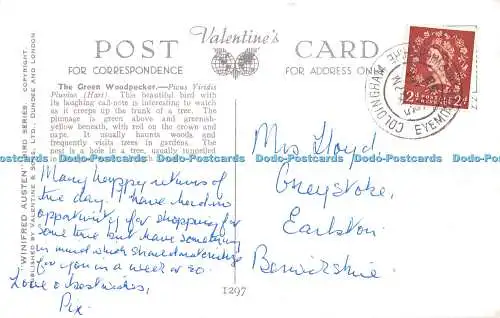 POST Valentine's CARD
FOR CORRESPONDENCE
FOR ADDRESS ONLY
The Green Woodpecker.—Picus Viridis
Pluvius (Hart). This beautiful bird with
its laughing call-note is interesting to watch
as it creeps up the trunk of a tree. The
plumage is green above and greenish-
yellow beneath, with red on the crown and
It usually haunts woods and
frequently visits trees in gardens. The
is a hole, usually tunnelled
"WINIFRED AUSTEN" BIRD SERIES. COPYRIGHT.
PUBLISHED BY VALENTINE & SONS, LTD., DUNDEE AND LONDON
Many happy returns of
the day. I have had no
opportunity for shopping for
some time but have something
in mind which should materialise
for you in a week or so.
Love & best wishes,
Pix.
1297
COLDINGHAM
EYEMOUTH
POSTAGE REVENUE
2d 2d
Mrs Lloyd,
Greystoke,
Earlston
Berwickshire
www.postcards-stocks.com